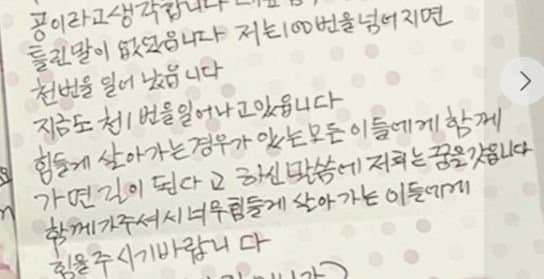 공이라고생각합니다
틀린말이 없었읍니다 저는100번을넘어지면
천번을 일어 났읍니다
지금도 천1번을일어나고있읍니다
힘들게 살아가는경우가 있는모든 이들에게 함께
가면길이 된다고 하신말씀에 저희는꿈을갖읍니다
함께가주셔서너무힘들게 살아가는 이들에게
힘을주시기바랍니다